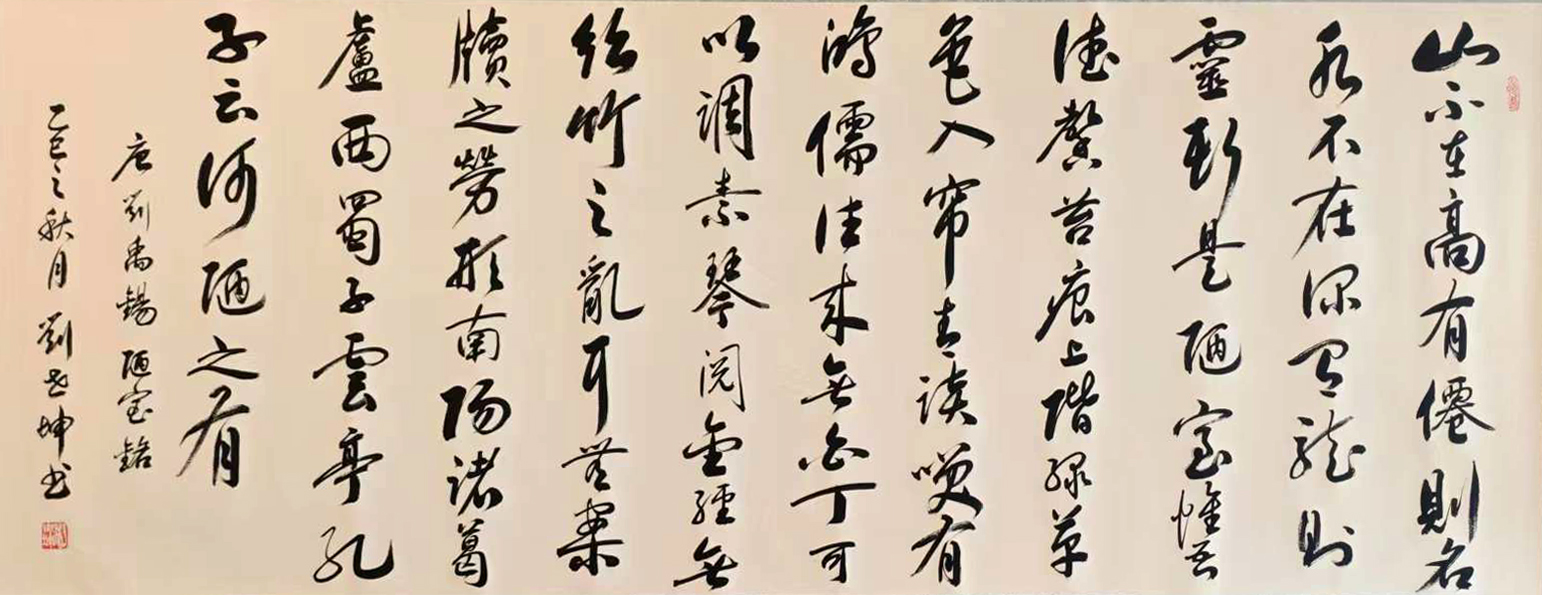 山不在高有僊則名
水不在深有龍則
靈斯是陋室惟吾
德馨苔痕上階綠草
色入帘青談咲有
鴻儒往來無白丁可
以調素琴閱金經無
絲竹之亂耳無案
牘之勞形南陽諸葛
盧西蜀子雲亭孔
子云何陋之有
唐劉禹錫陋室銘
乙巳之秋月劉世坤书